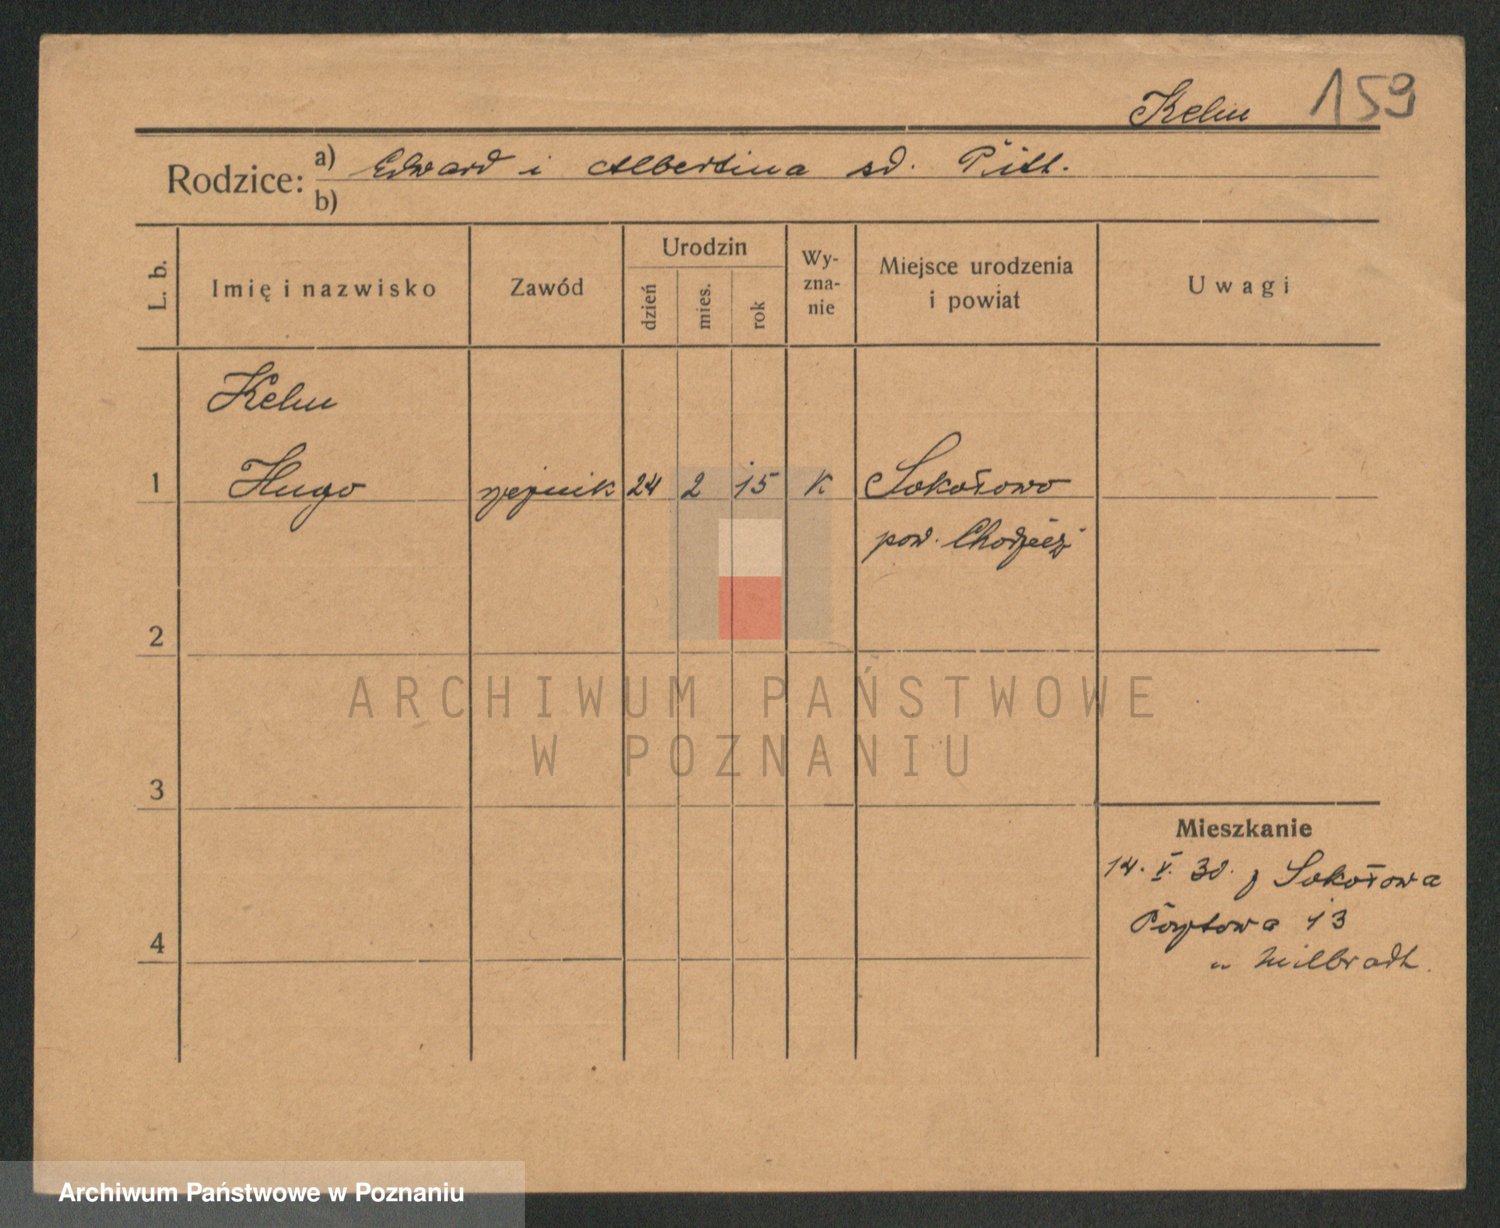 Kelm 159
Rodzice: a) Edward i Albertina sd.
b)
L. b. Imię i nazwisko Zawód Urodzin dzień mies. rok Wy-zna-nie Miejsce urodzenia i powiat Uwagi
Kelm
1 Hugo 24 2 15 K Sokołowo
pow. Chodzież
2
3
4
Mieszkanie
14. V. 30. z Sokołowa
13
" Milbradt.
ARCHIWUM PAŃSTWOWE
W POZNANIU
Archiwum Państwowe w Poznaniu